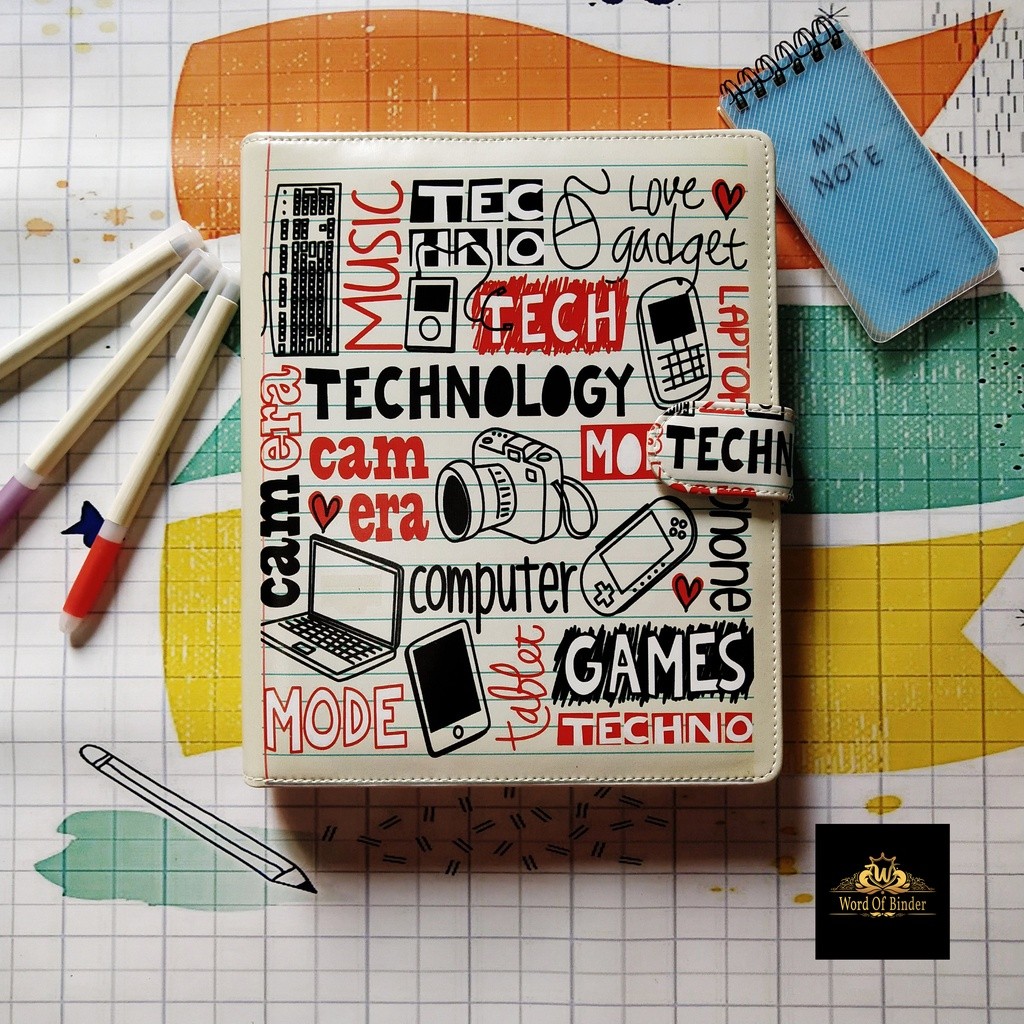 MY
NOTE
MUSIC
TEC
HNO
LOVE
gadget
TECH
LAPTO
camera
TECHNOLOGY
cam
era
MO
TECHN
phone
computer
tablet
GAMES
MODE
TECHNO
W
Word Of Binder